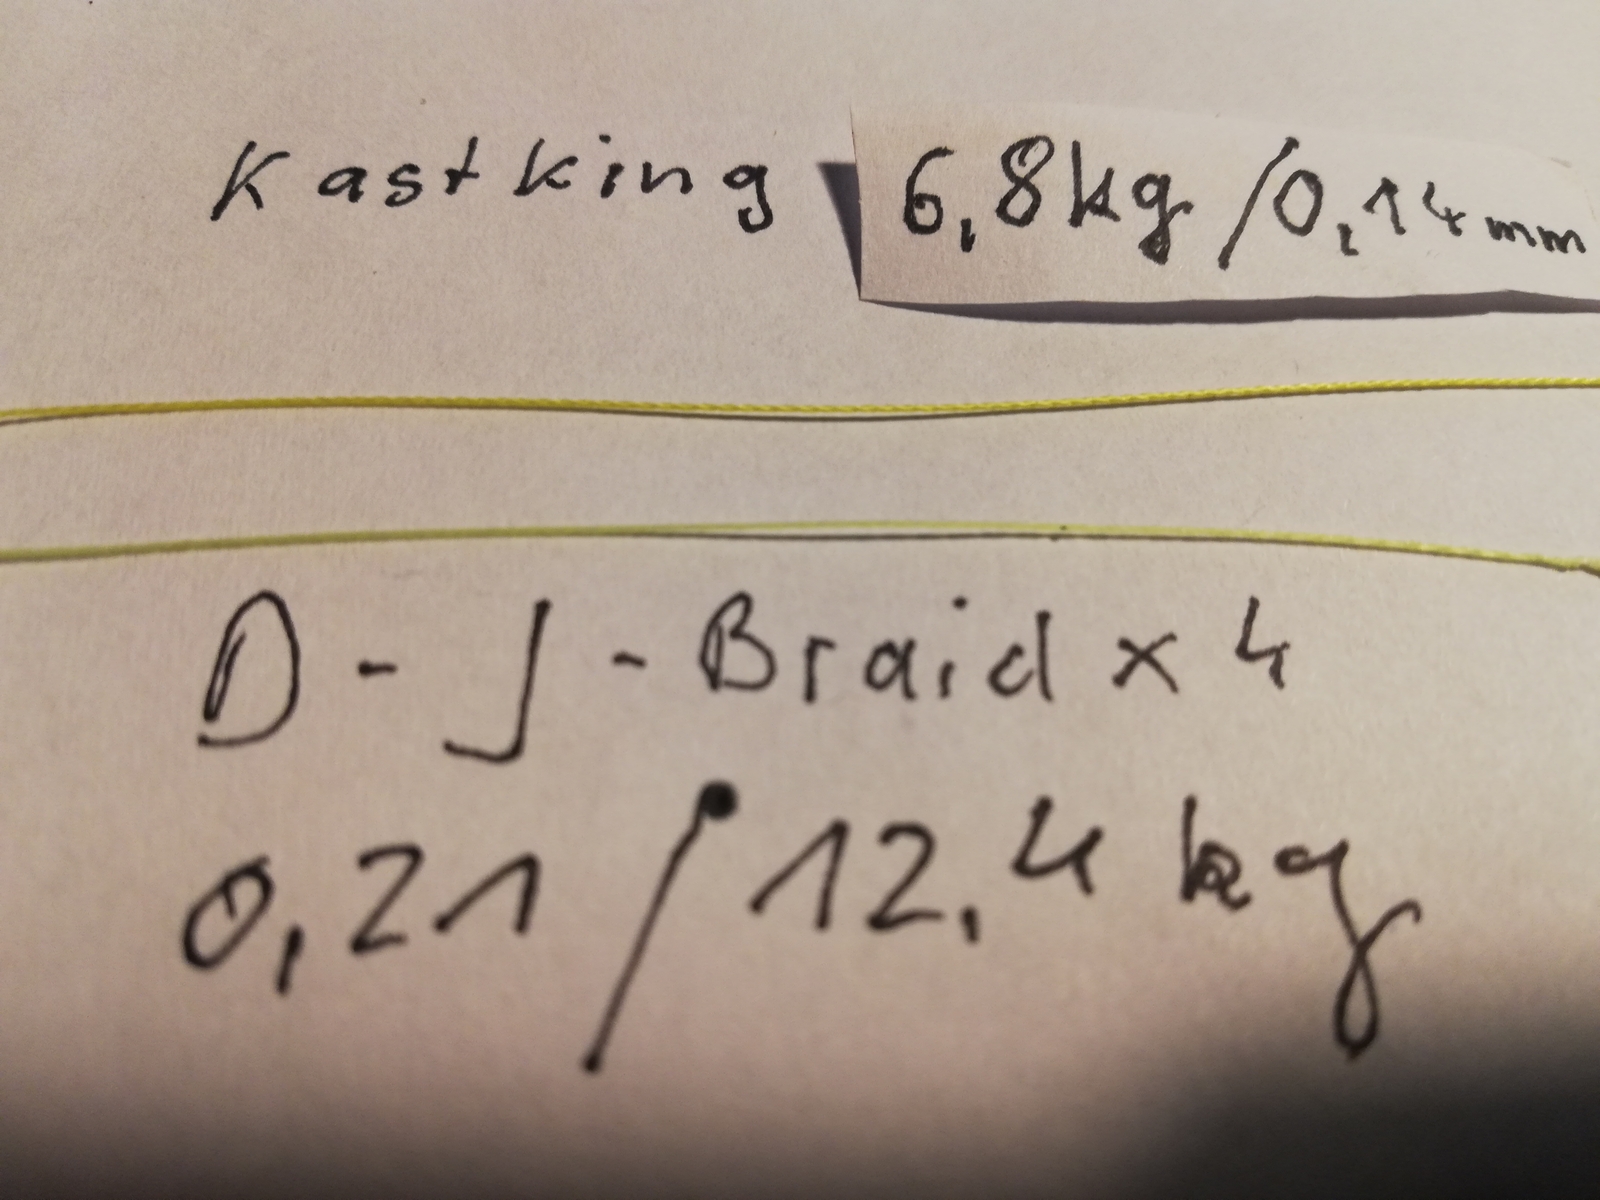 Kastking 6,8kg/0,14mm
D-J-Braid x4
0,21/12,4 kg